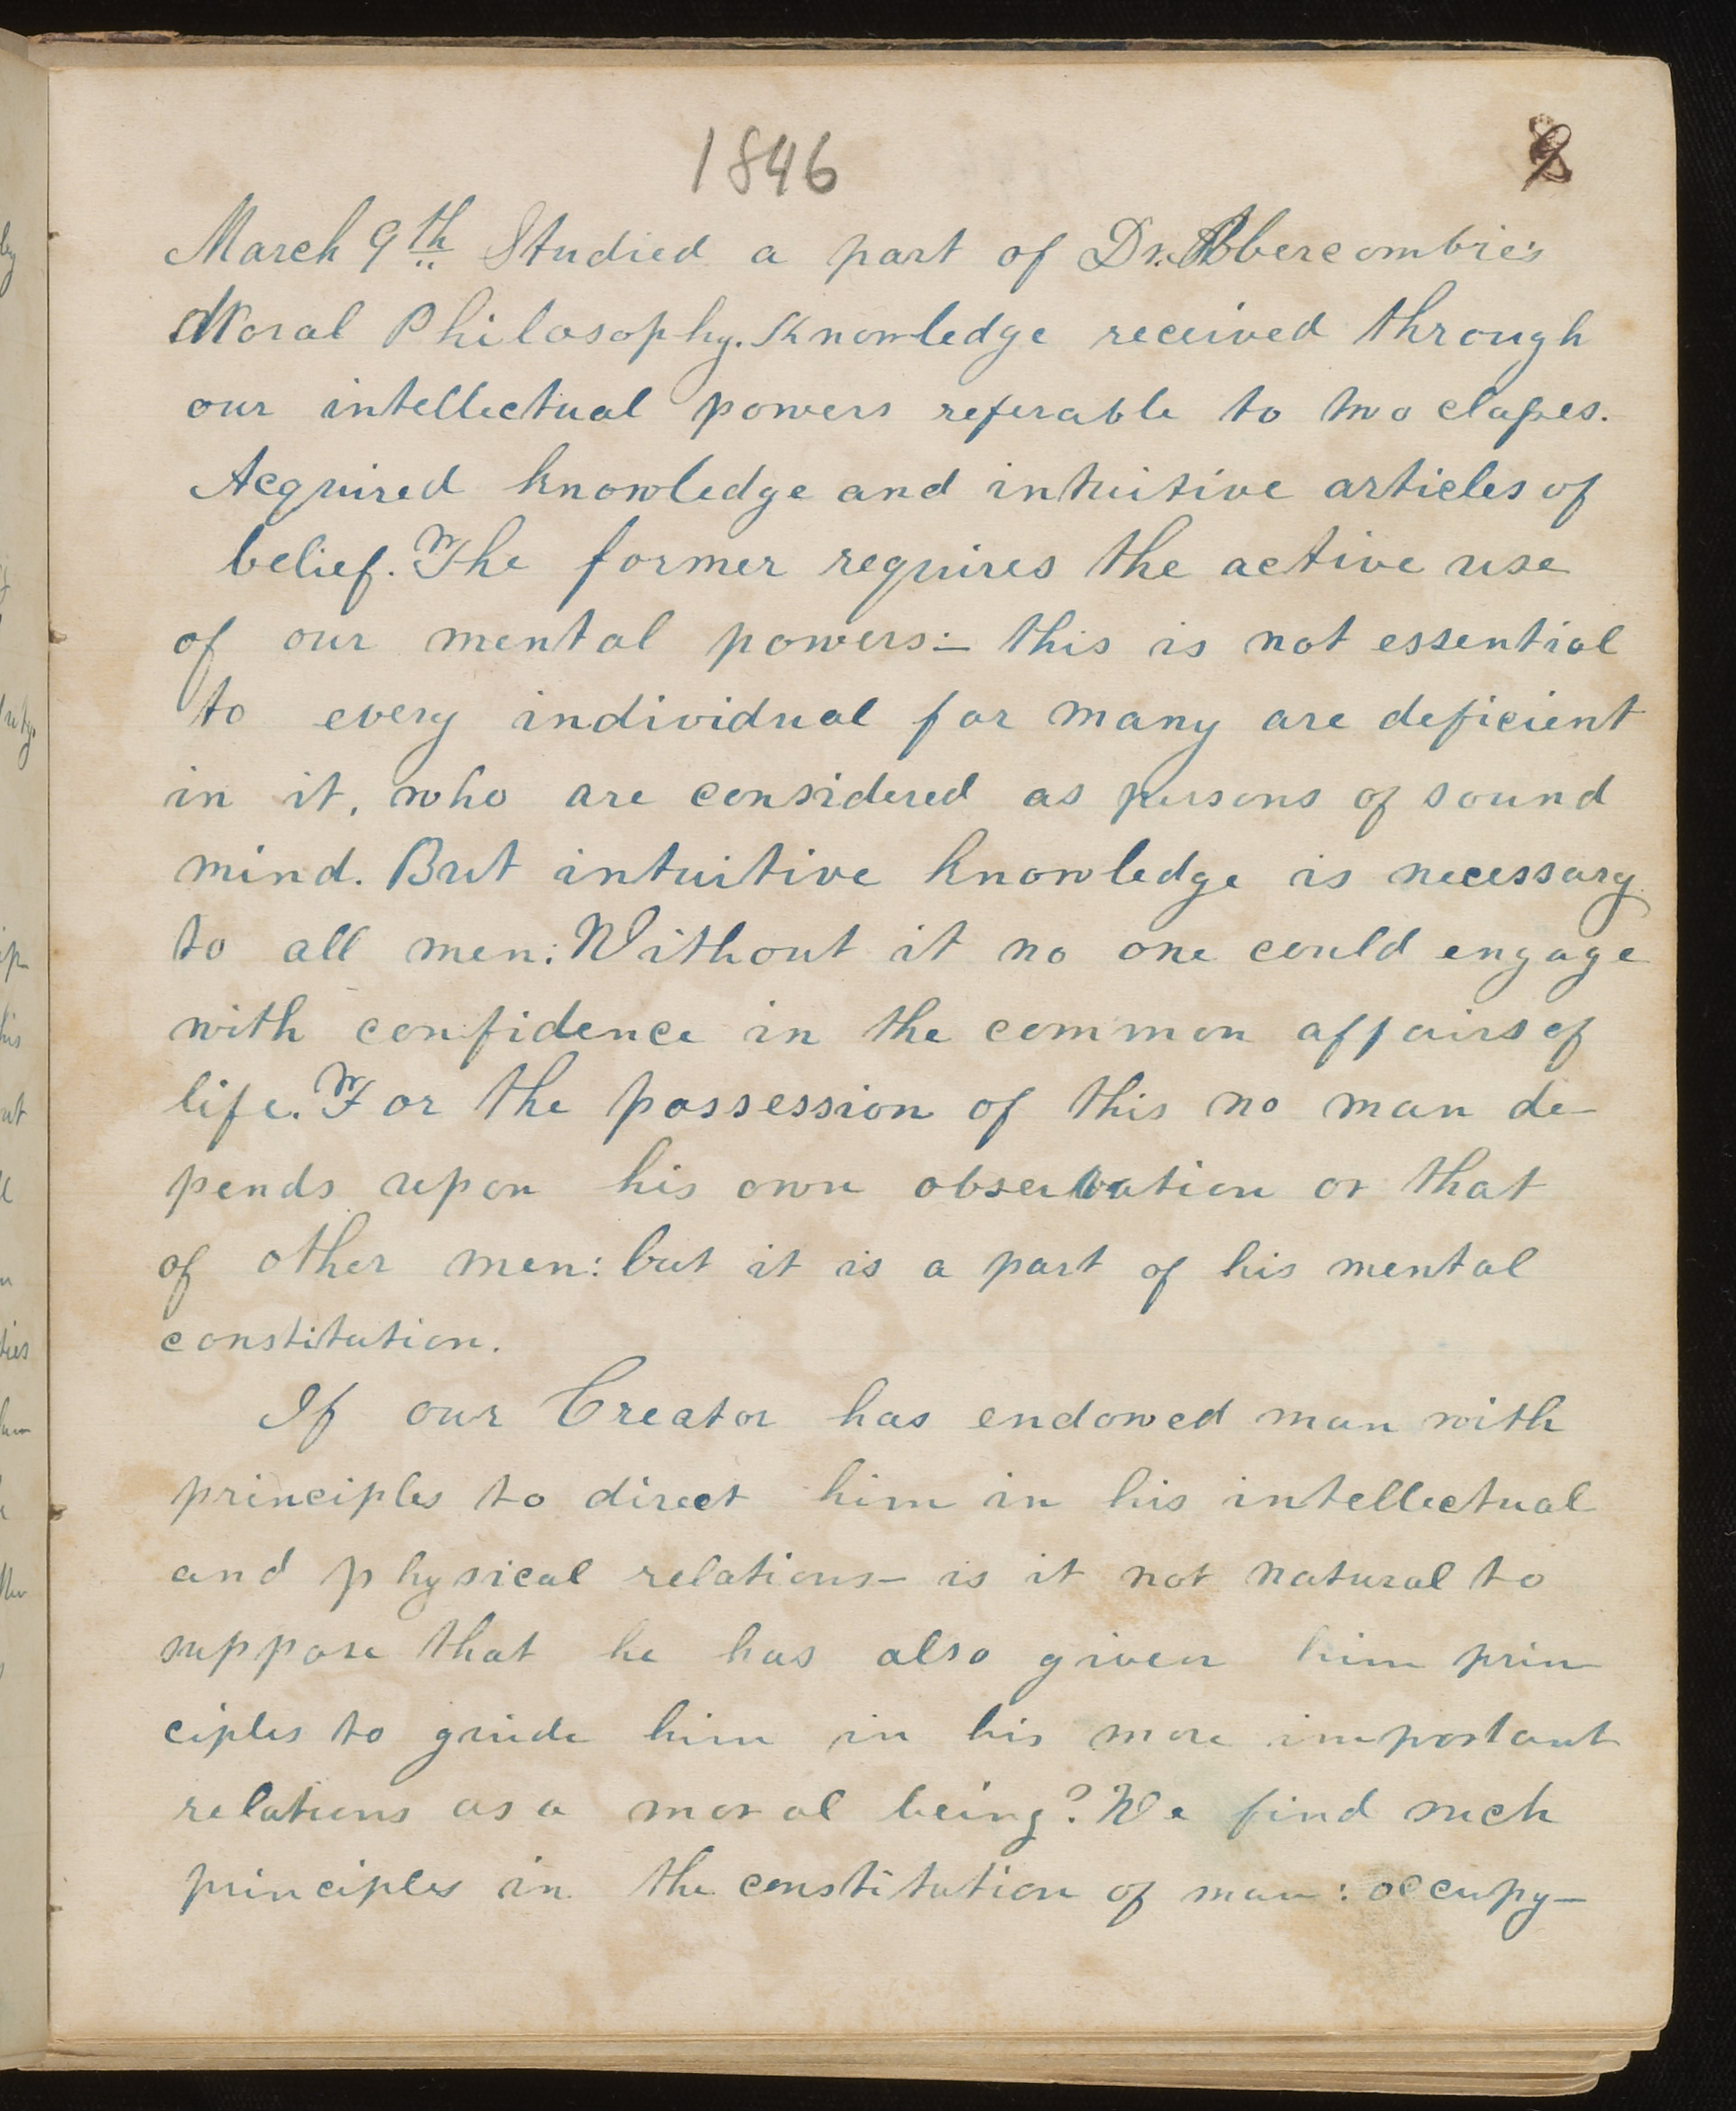 1846
March 9th Studied a part of Dr. Abbercombie's
Moral Philosophy. Knowledge received through
our intellectual powers referable to two classes.
Acquired knowledge and intuitive articles of
belief. The former requires the active use
of our mental powers:— this is not essential
to every individual for many are deficient
in it, who are considered as persons of sound
mind. But intuitive knowledge is necessary
to all men: Without it no one could engage
with confidence in the common affairs of
life. For the possession of this no man de-
pends upon his own observation or that
of other men: but it is a part of his mental
constitution.
If our Creator has endowed man with
principles to direct him in his intellectual
and physical relations— is it not natural to
suppose that he has also given him prin
ciples to guide him in his more important
relations as a moral being? We find such
principles in the constitution of man: occupy-